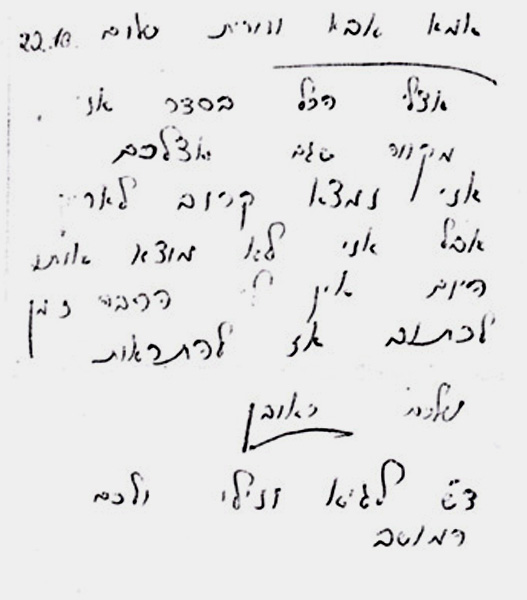 אמא אבא ונורית שלום 22.10
אצלי הכל בסדר אני
מקווה שגם אצלכם
אני נמצא קרוב
אבל אני לא מוצא אותו
היום אין לי הרבה זמן
לכתוב אז להתראות
שלכם ראובן
ד"ש לגיא ונילי ולכם
המושב